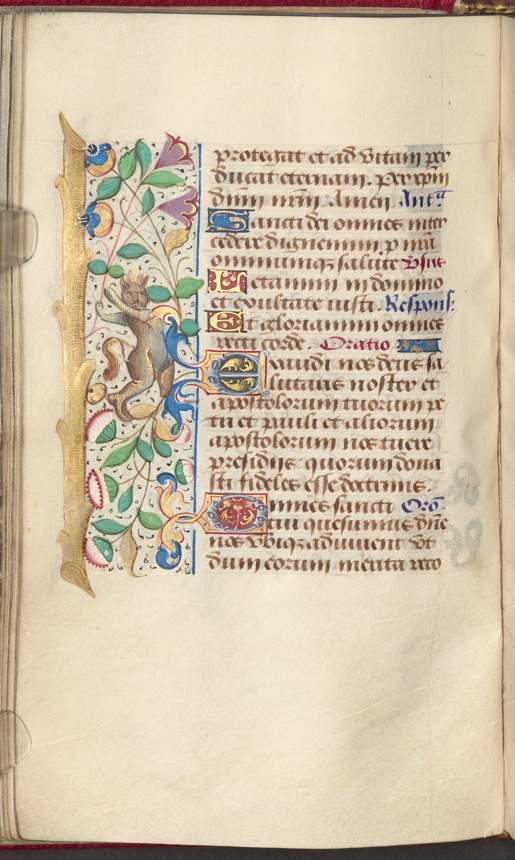 protegat et ad vitam per
ducat eternam. per xpm
dnm nrm. Amen. Anta
Sancti dei omnes inter
cedere dignemini p nra
omniumq salute Vsus
Letamini in domino
et exultate iusti. Respons:
Et gloriamini omnes
recti corde. Oratio
Exaudi nos deus sa
lutaris noster et
apostolorum tuorum pe
tri et pauli et aliorum
apostolorum nos tuere
presidijs quorum dona
sti fideles esse doctrinis.
Omnes sancti Oro.
tui quesumus dne
nos vbiq adiuuent vt
dum eorum merita reco